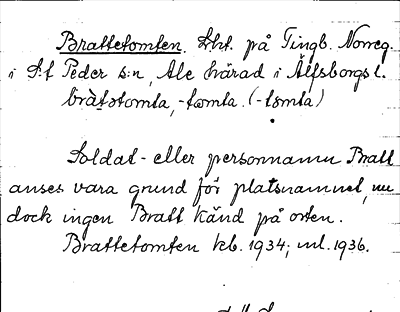 Brattetomten. Lht. på Tingb. Norreg.
i S:t Peder s:n, Ale härad i Älfsborgs l.
bràtətomta, -tomta. (-tomta)
Soldat- eller personnamn Bratt
anses vara grund för platsnamnet, nu
dock ingen Bratt känd på orten.
Brattetomten kb. 1934; ml. 1936.